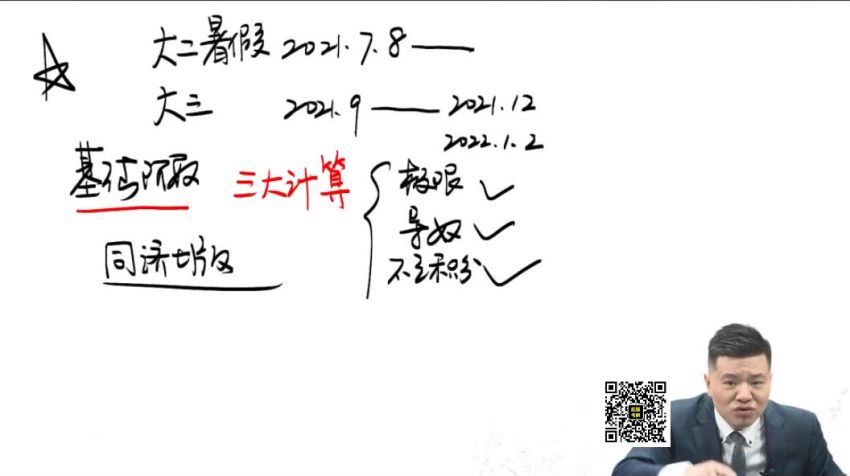 大二暑假 2021.7.8 —
大三 2021.9 — 2021.12
2022.1.2
基础阶段 三大计算
极限 ✓
导数 ✓
不定积分 ✓
同济七版